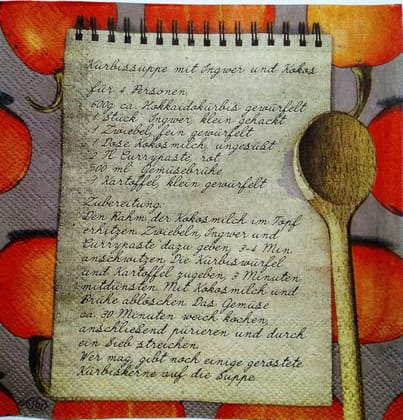 Kürbissuppe mit Ingwer und Kokos
für 4 Personen
600g ca. Hokkaidokürbis gewürfelt
1 Stück Ingwer, klein gehackt
1 Zwiebel, fein gewürfelt
1 Dose Kokosmilch, ungesüßt
2 Tl Currypaste, rot
500 ml Gemüsebrühe
1 Kartoffel, klein gewürfelt
Zubereitung:
Den Rahm der Kokosmilch im Topf
erhitzen. Zwiebeln, Ingwer und
Currypaste dazu geben, 3-4 Min.
anschwitzen. Die Kürbiswürfel
und Kartoffel zugeben, 3 Minuten
mitdünsten. Mit Kokosmilch und
Brühe ablöschen. Das Gemüse
ca. 30 Minuten weich kochen,
anschließend pürieren und durch
ein Sieb streichen.
Wer mag, gibt noch einige geröstete
Kürbiskerne auf die Suppe.